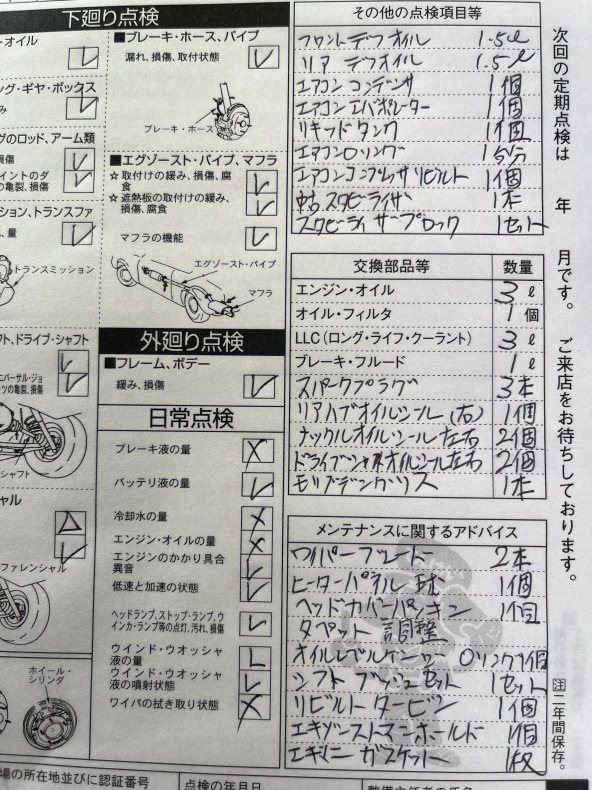 下廻り点検
・オイル
ング・ギヤ・ボックス
み
グのロッド、アーム類
損傷
イントのダ
の亀裂、損傷
ション、トランスファ
、量
トランスミッション
フト、ドライブ・シャフト
ニバーサル・ジョ
ーツの亀裂、損傷
シャフト
ャル
ファレンシャル
ホイール・
シリンダ
■ブレーキ・ホース、パイプ
漏れ、損傷、取付状態
ブレーキ・ホース
■エグゾースト・パイプ、マフラ
☆取付けの緩み、損傷、腐
食
☆遮熱板の取付けの緩み、
損傷、腐食
マフラの機能
エグゾースト・パイプ
マフラ
外廻り点検
■フレーム、ボデー
緩み、損傷
日常点検
ブレーキ液の量
バッテリ液の量
冷却水の量
エンジン・オイルの量
エンジンのかかり具合
異音
低速と加速の状態
ヘッドランプ、ストップ・ランプ、ウ
インカ・ランプ等の点灯、汚れ、損傷
ウインド・ウオッシャ
液の量
ウインド・ウオッシャ
液の噴射状態
ワイパの拭き取り状態
その他の点検項目等
フロントデフオイル 1.5ℓ
リア デフオイル 1.5ℓ
エアコン コンデンサ 1個
エアコン エバポレーター 1個
リキッドタンク 1個
エアコンOリング 1台分
エアコンコンプレッサリビルト 1個
中古スタビライザ 1本
スタビライザーブロック 1セット
交換部品等 数量
エンジン・オイル 3ℓ
オイル・フィルタ 1個
LLC(ロング・ライフ・クーラント) 3ℓ
ブレーキ・フルード 1ℓ
スパークプラグ 3本
リアハブオイルシール(右) 1個
ナックルオイルシール左右 2個
ドライブシャフトオイルシール左右 2個
モリブデングリス 1本
メンテナンスに関するアドバイス
ワイパーブレード 2本
ヒーターパネル球 1個
ヘッドカバーパッキン 1個
タペット調整
オイルレベルゲージ Oリング1個
シフトブッシュセット 1セット
リビルトタービン 1個
エキゾーストマニホールド 1個
エキマニガスケット 1枚
次回の定期点検は 年 月です。 ご来店をお待ちしております。
注 二年間保存。
場の所在地並びに認証番号
点検の年月日
整備主任者の氏名